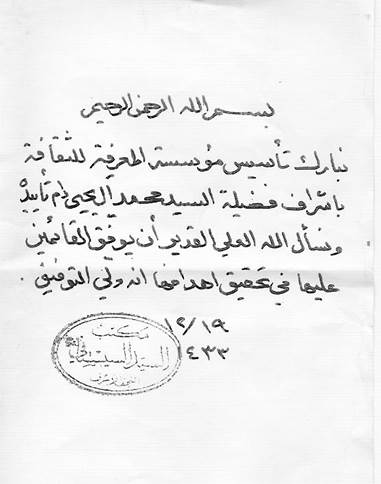 بسم الله الرحمن الرحيم
نبارك تأسيس مؤسسة المعرفة للثقافة
باشراف فضيلة السيد محمد اليحيى دام تأييده
ونسأل الله العلي القدير أن يوفق القائمين
عليها في تحقيق اهدافها انه ولي التوفيق.
١٢/١٩
١٤٣٣
مكتب
السيد السيستاني
النجف الاشرف